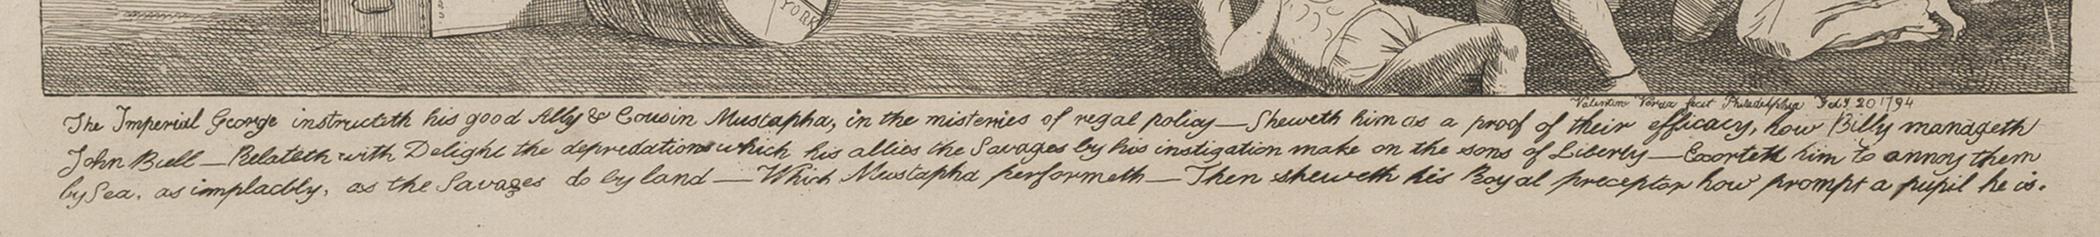 YORK
Valentin Verax fecit Philadelphia Feb.y 20 1794
The Imperial George instructeth his good Ally & Cousin Mustapha, in the misteries of regal policy — Sheweth him as a proof of their efficacy, how Billy manageth
John Bull — Relateth with Delight the depredations which his allies the Savages by his instigation make on the sons of Liberty — Exorteth him to annoy them
by Sea, as implacbly, as the Savages do by land — Which Mustapha performeth — Then sheweth his Royal preceptor how prompt a pupil he is.